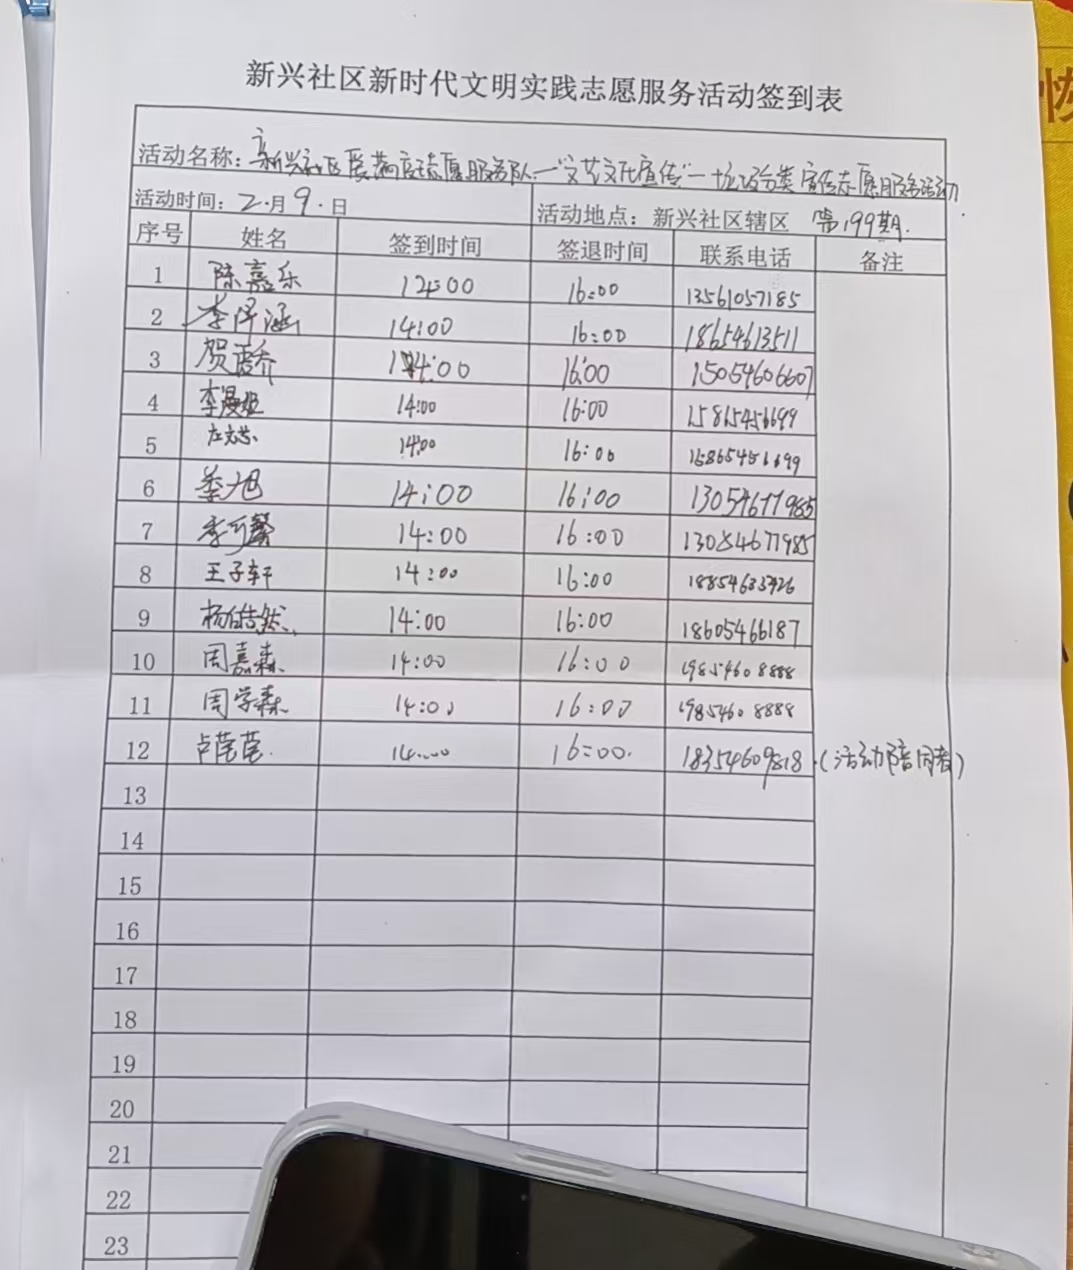 新兴社区新时代文明实践志愿服务活动签到表
活动名称：新兴社区 志愿服务队—"文艺文化宣传"—垃圾分类宣传志愿服务活动
活动时间：2·月9·日 活动地点：新兴社区辖区 第199期.
序号 姓名 签到时间 签退时间 联系电话 备注
1 陈嘉乐 14:00 16:00 13561057185
2 李泽涵 14:00 16:00 18654613511
3 贺 乔 14:00 16:00 15054606607
4 李 14:00 16:00 15865456699
5 左 14:00 16:00 15865456699
6 季旭 14:00 16:00 13054677985
7 李可馨 14:00 16:00 13054677985
8 王子轩 14:00 16:00 18854633426
9 杨皓然 14:00 16:00 18605466187
10 周嘉森 14:00 16:00 19854608888
11 周学森 14:00 16:00 19854608888
12 卢莲莲 14:00 16:00. 18354609818 (活动陪同者)
13
14
15
16
17
18
19
20
21
22
23